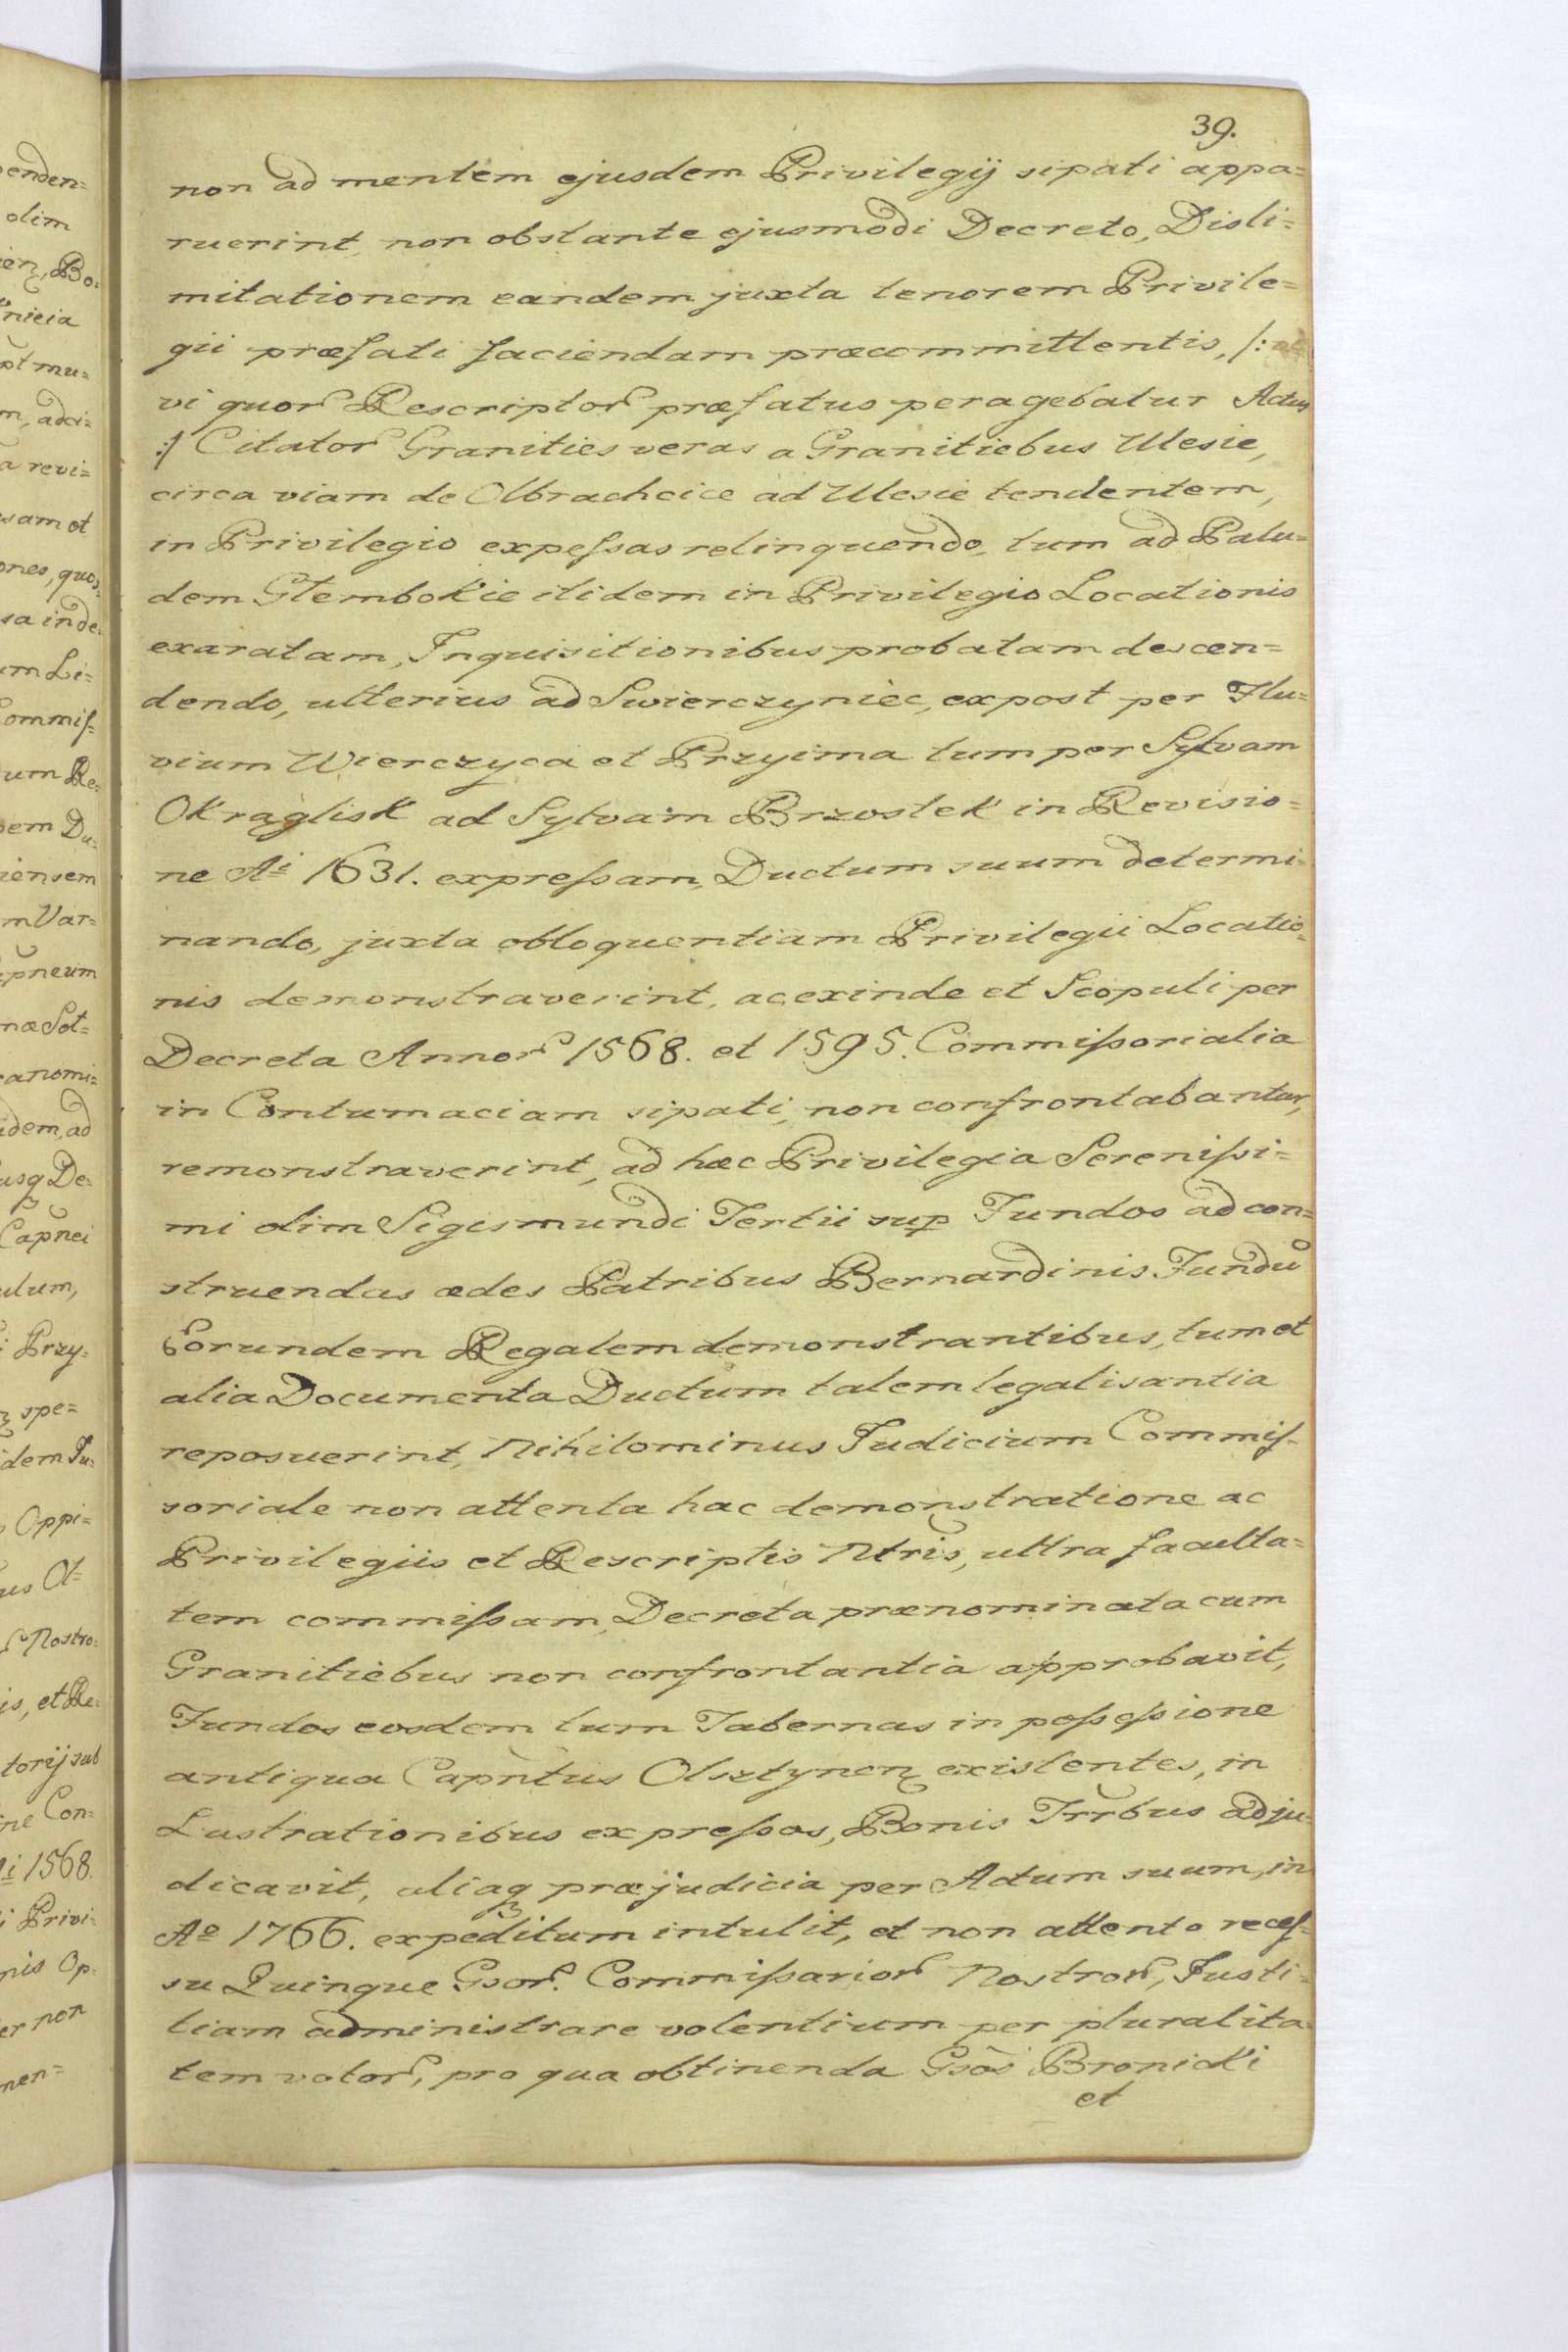 39.
non ad mentem ejusdem Privilegij sipati appa=
ruerint, non obstante ejusmodi Decreto, Disli=
mitationem eandem juxta tenorem Privile=
gii præfati faciendam præcommittentis, /:
vi quor Rescriptor præfatus peragebatur Actus
:/ Citator Granities veras a Granitiebus Ulesie,
circa viam de Olbrachcice ad Ulesie tendentem,
in Privilegio expeſsas relinquendo, tum ad Palu=
dem Głembokie itidem in Privilegio Locationis
exaratam, Inquisitionibus probatam descen=
dendo, ulterius ad Swierczyniec, expost per Flu=
vium Wierczyca et Przyima tum per Sylvam
Okrąglisk ad Sylvam Brzostek in Revisio=
ne Ai 1631. expreſsam, Ductum suum determi=
nando, juxta obloquentiam Privilegii Locatio=
nis demonstraverint, ac exinde et Scopuli per
Decreta Annor 1568. et 1595. Commiſsorialia
in Contumaciam sipati, non confrontabantur,
remonstraverint, ad hæc Privilegia Sereniſsi=
mi olim Sigismundi Tertii sup Fundos ad con=
struendas ædes Patribus Bernardinis Fundū
Eorundem Regalem demonstrantibus, tum et
alia Documenta Ductum talem legalisantia
reposuerint, Nihilominus Judicium Commiſ=
soriale non attenta hac demonstratione ac
Privilegiis et Rescriptis Ntris, ultra faculta=
tem commiſsam, Decreta prænominata cum
Granitiebus non confrontantia approbavit,
Fundos eosdem tum Tabernas in poſseſsione
antiqua Capntus Olsztynen existentes, in
Lustrationibus expreſsas, Bonis Trrbus adju=
dicavit, aliaq præjudicia per Actum suum, in
Ao 1766. expeditum intulit, et non attento receſ=
su Quinque Gsor. Commiſsarior Nostror, Justi=
tiam administrare volentium per pluralita=
tem votor, pro qua obtinenda Gsos Bronicki
et
enden=
olim
Bo=
nicia
mu=
adci=
a revi=
sam et
ones, quos
sa inde
um Li=
Commiſ=
um Re=
Du=
iensem
m Var=
pneum
næ Sol=
anomi=
idem, ad
usq De=
Capnei
ulum,
Przy=
spe=
idem Ju=
Oppi=
us Ol=
Nostro=
is, et Re=
torij sub
ne Con=
i 1568.
Privi=
nis Op=
er non
men=